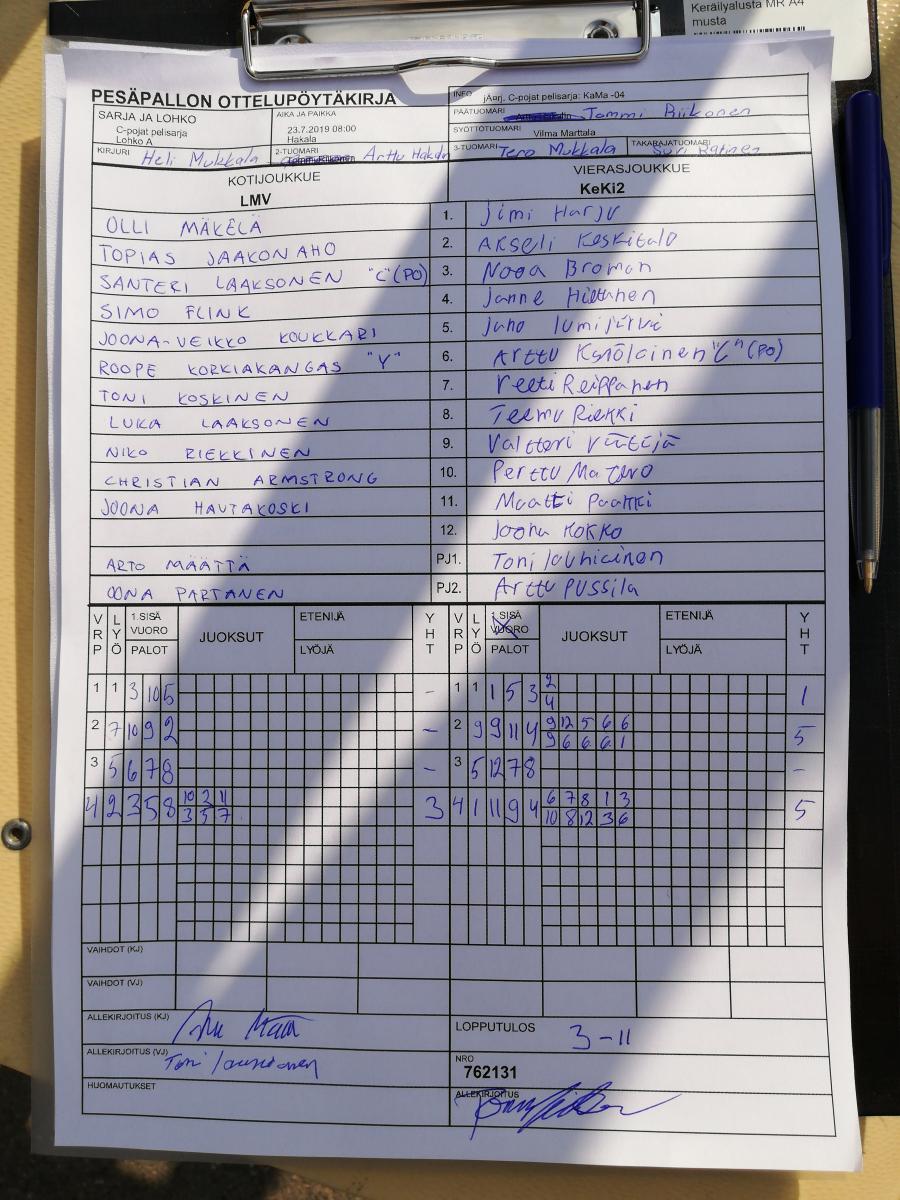 Keräilyalusta MR A4
musta
PESÄPALLON OTTELUPÖYTÄKIRJA
INFO jÄørj. C-pojat pelisarja: KaMa -04
SARJA JA LOHKO
C-pojat pelisarja
Lohko A
AIKA JA PAIKKA
23.7.2019 08:00
Hakala
PÄÄTUOMARI Tommi Riikonen
SYÖTTÖTUOMARI Vilma Marttala
KIRJURI Heli Mukkala 2-TUOMARI Arttu 3-TUOMARI Tero Mukkala TAKARAJATUOMARI
KOTIJOUKKUE VIERASJOUKKUE
LMV KeKi2
OLLI MÄKELÄ 1. Jimi Harju
TOPIAS JAAKONAHO 2. Akseli Keskitalo
SANTERI LAAKSONEN "C"(PO) 3. Nooa Broman
SIMO FLINK 4. Janne Hiltunen
JOONA-VEIKKO KOUKKARI 5. Juho lumijärvi
ROOPE KORKIAKANGAS "Y" 6. Arttu "C" (PO)
TONI KOSKINEN 7. Veeti Reippanen
LUKA LAAKSONEN 8. Teemu Riekki
NIKO RIEKKINEN 9. Valtteri
CHRISTIAN ARMSTRONG 10. Perttu Matero
JOONA HAUTAKOSKI 11. Maatti Paakki
12. Joona Kokko
ARTO MÄÄTTÄ PJ1. Toni
OONA PARTANEN PJ2. Arttu PUSSILA
VRP LYÖ 1.SISÄ VUORO PALOT JUOKSUT ETENIJÄ LYÖJÄ YHT VRP LYÖ 1.SISÄ VUORO PALOT JUOKSUT ETENIJÄ LYÖJÄ YHT
1 1 3 10 5 - 1 1 1 5 3 2 1
4
2 7 10 9 2 - 2 9 9 11 4 9 12 5 6 6 5
9 6 6 6 1
3 5 6 7 8 - 3 5 12 7 8 -
4 2 3 5 8 10 2 11 3 4 1 11 9 4 6 7 8 1 3 5
3 5 7 10 8 12 3 6
VAIHDOT (KJ)
VAIHDOT (VJ)
ALLEKIRJOITUS (KJ)
LOPPUTULOS 3-11
ALLEKIRJOITUS (VJ) Toni
NRO
762131
HUOMAUTUKSET
ALLEKIRJOITUS